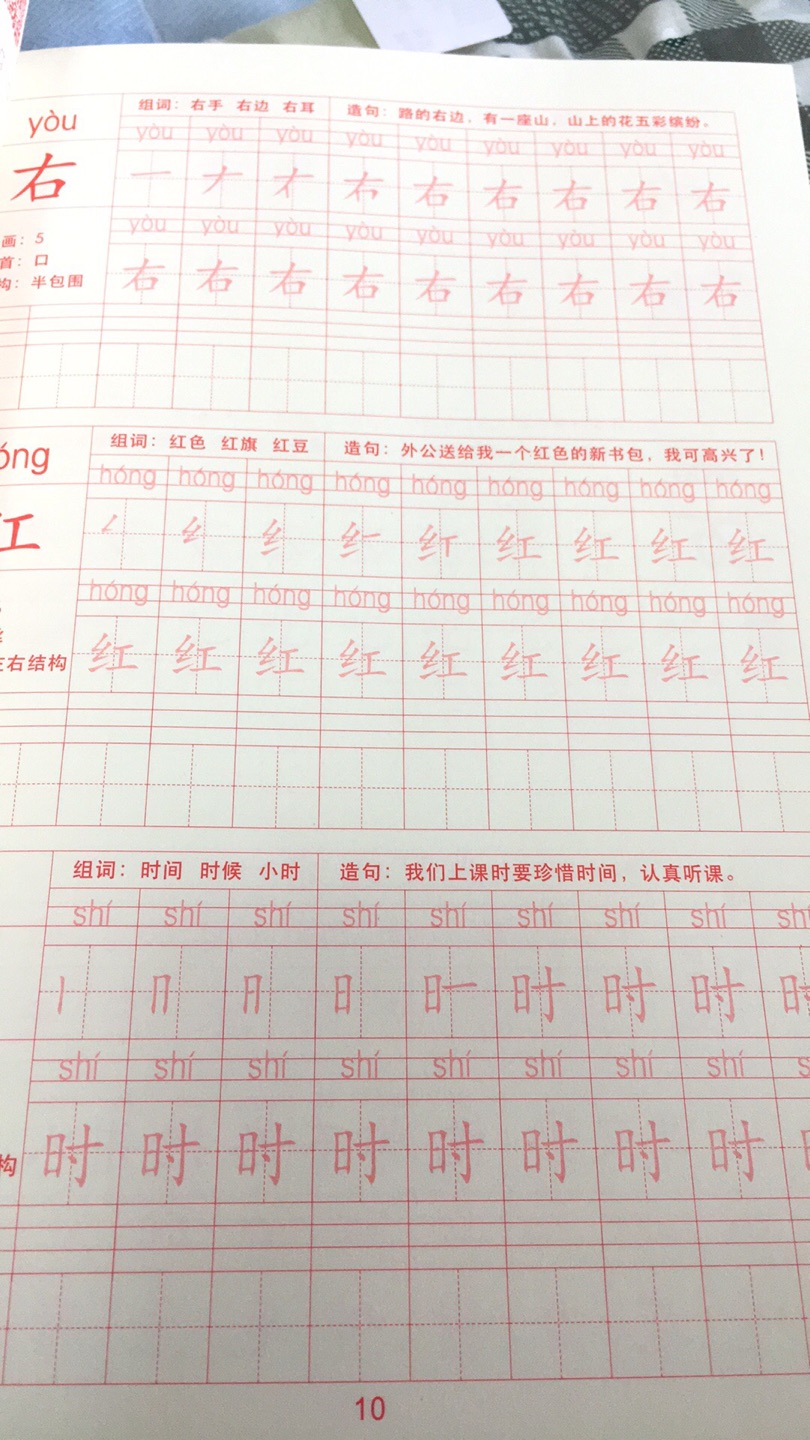 组词：右手 右边 右耳 造句：路的右边，有一座山，山上的花五彩缤纷。
yòu
yòu yòu yòu yòu yòu yòu yòu yòu yòu
右
右 右 右 右 右
yòu yòu yòu yòu yòu yòu yòu yòu yòu
画：5
首：口
构：半包围
右 右 右 右 右 右 右 右 右
组词：红色 红旗 红豆 造句：外公送给我一个红色的新书包，我可高兴了！
óng
hóng hóng hóng hóng hóng hóng hóng hóng hóng
红
红 红 红 红
hóng hóng hóng hóng hóng hóng hóng hóng hóng
左右结构
红 红 红 红 红 红 红 红 红
组词：时间 时候 小时 造句：我们上课时要珍惜时间，认真听课。
shí shí shí shí shí shí shí shí shí
时 时 时 时
shí shí shí shí shí shí shí shí s
构
时 时 时 时 时 时 时 时 时
10